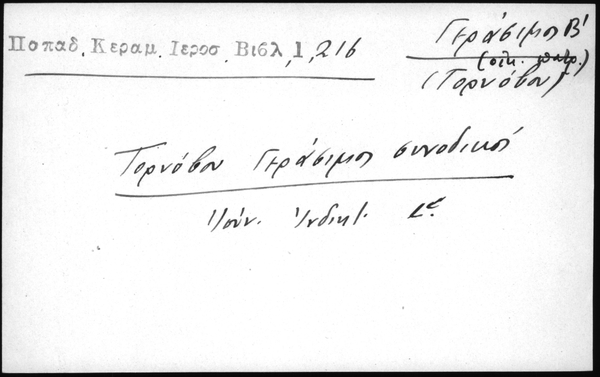 Παπαδ. Κεραμ. Ιεροσ. Βιβλ, 1, 216
Γεράσιμος Β'
(οἰκ. πατρ.)
(Τορνόβου)
Τορνόβου Γεράσιμος συνοδικός
Ἰούν. Ἰνδικτ.